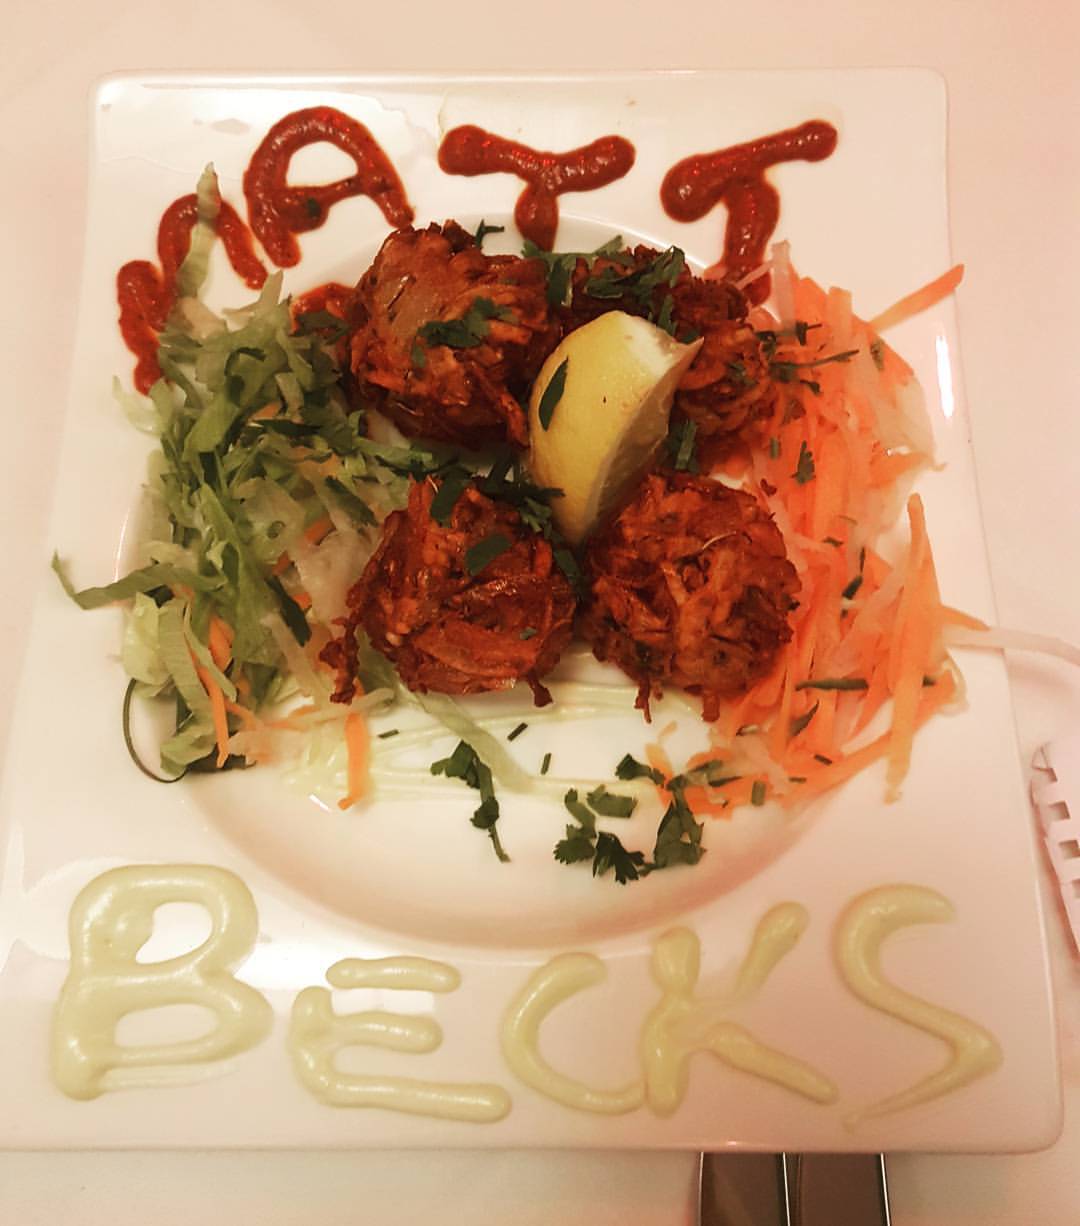 MATT
BECKS